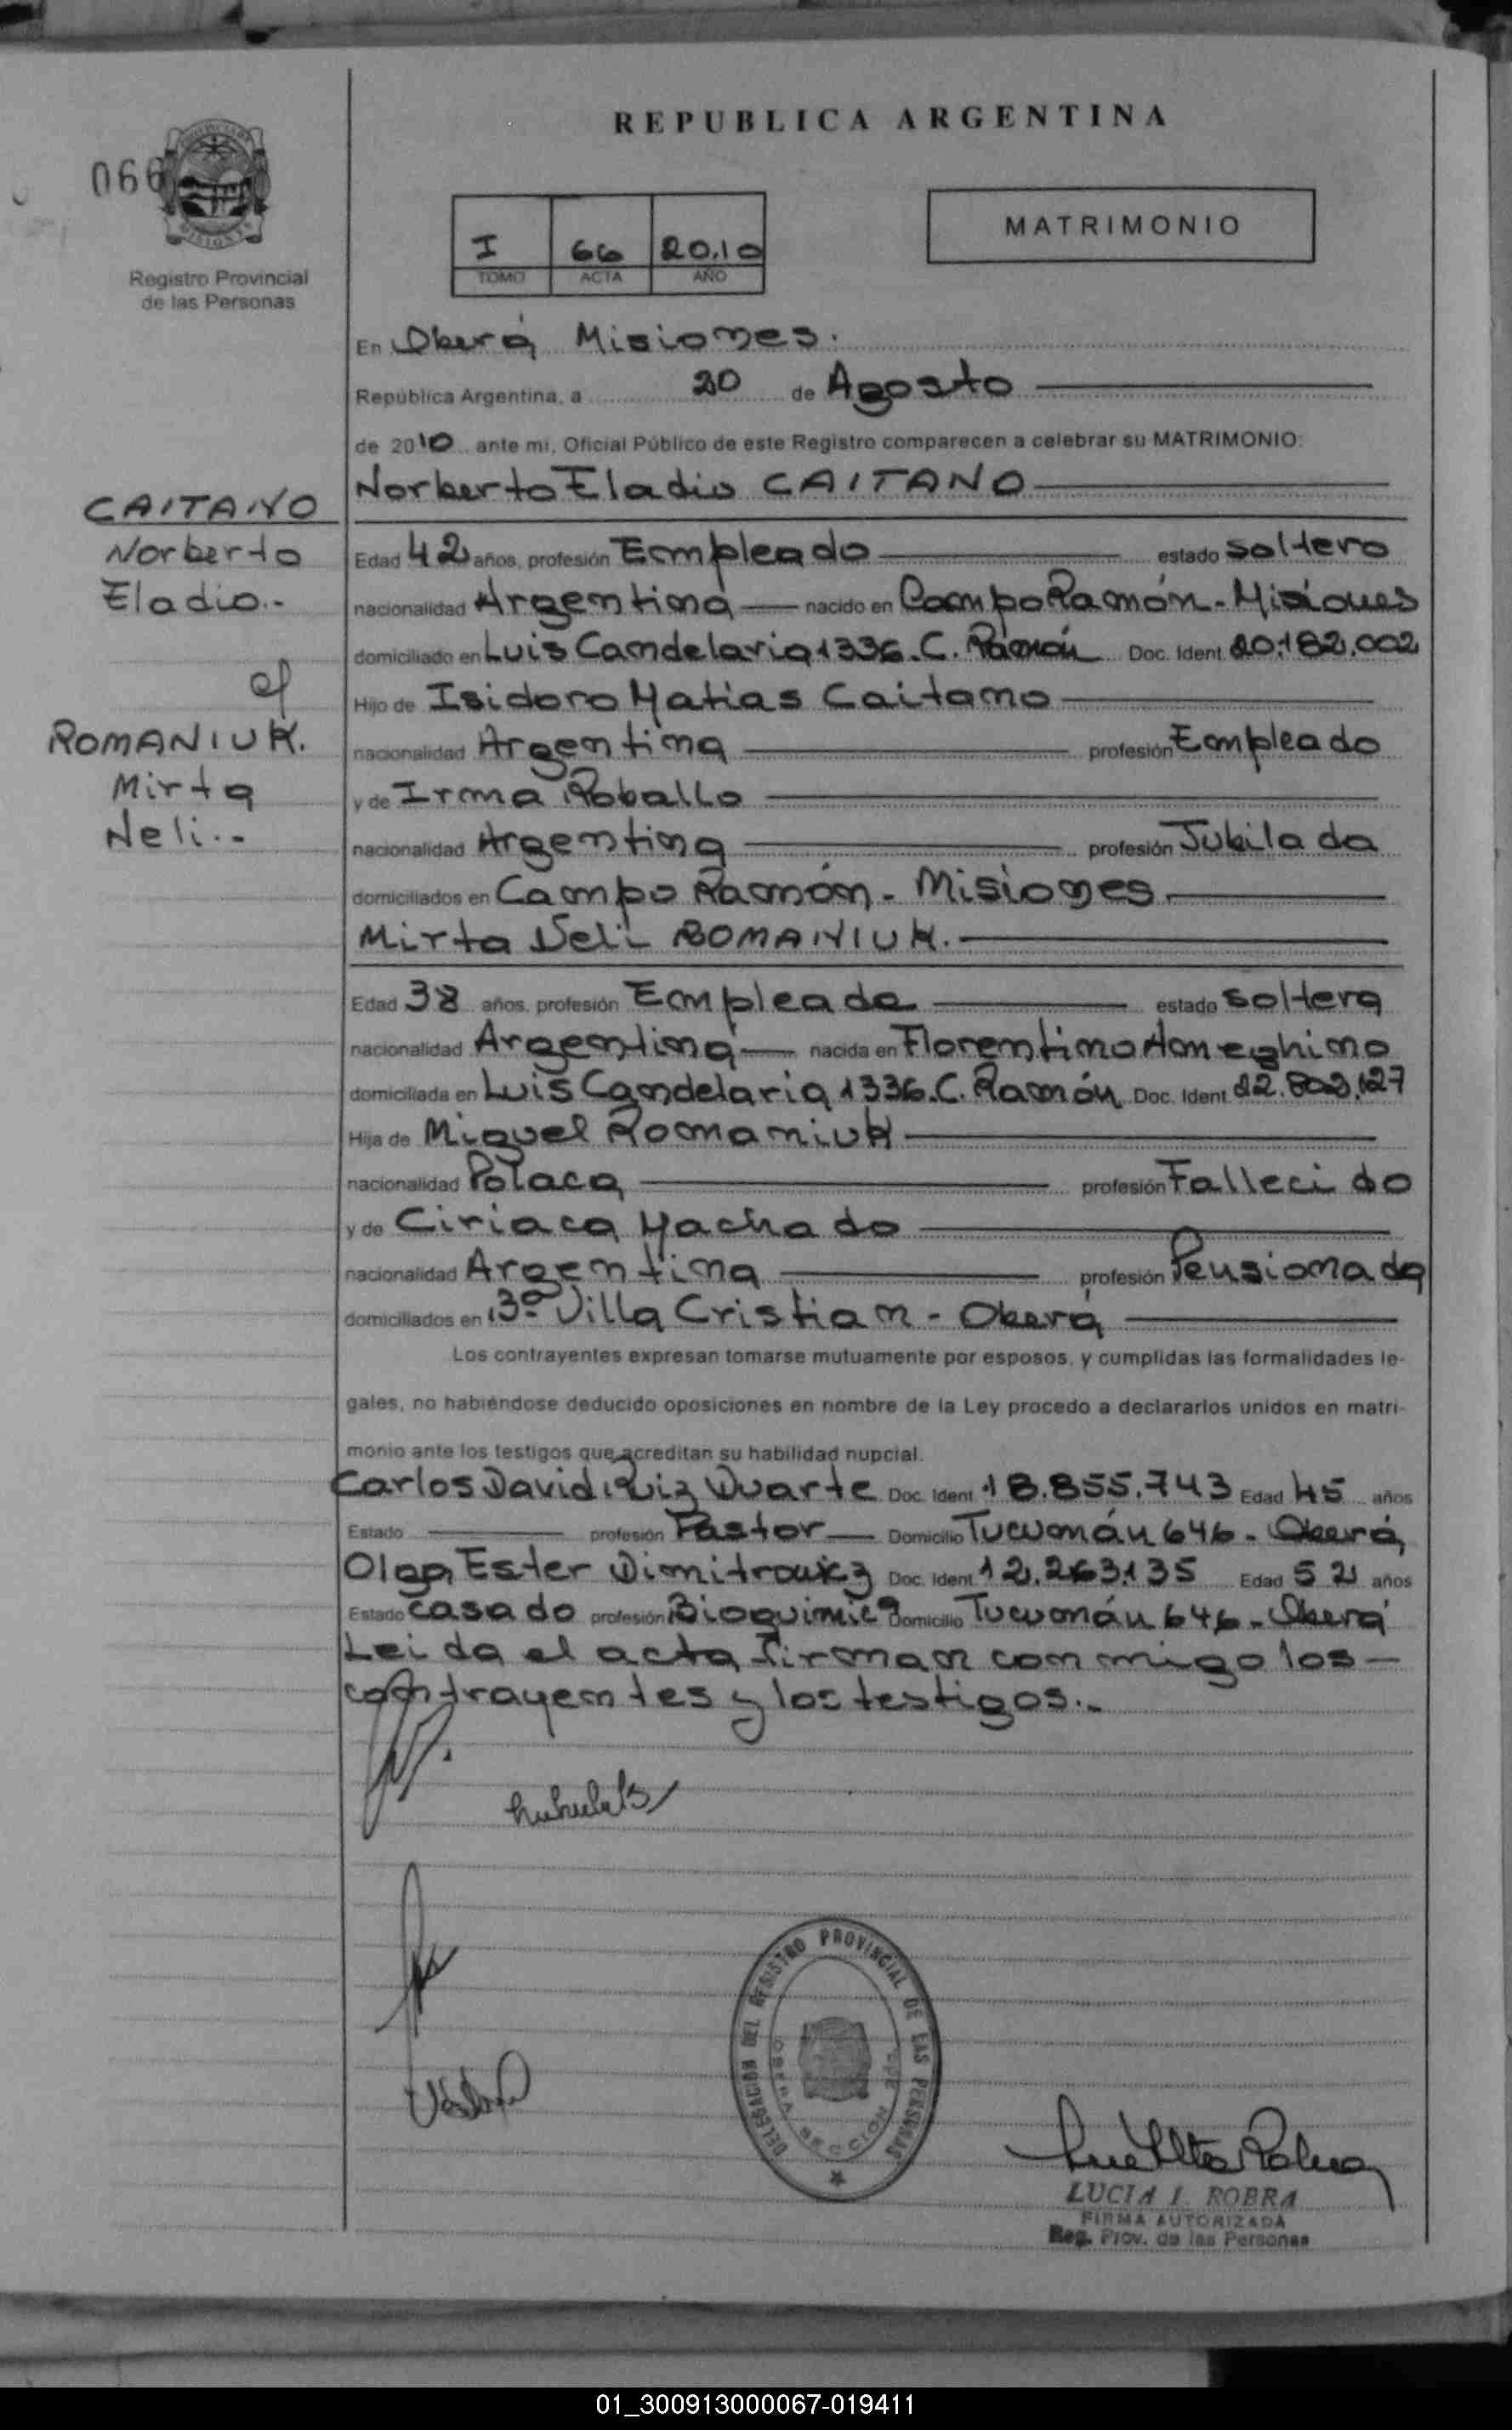 REPUBLICA ARGENTINA
066
Registro Provincial
de las Personas
I 66 2010
TOMO ACTA AÑO
MATRIMONIO
En Oberá Misiones.
República Argentina, a 20 de Agosto
de 2010 ante mi, Oficial Público de este Registro comparecen a celebrar su MATRIMONIO:
Norberto Eladio CAITANO
CAITANO
Norberto
Eladio.-
ROMANIUK.
Mirta
Neli.-
Edad 42 años, profesión Empleado estado soltero
nacionalidad Argentina nacido en Campo Ramón - Misiones
domiciliado en Luis Candelaria 1336. C. Ramón Doc. Ident 20.182.002
Hijo de Isidoro Matias Caitano
nacionalidad Argentina profesión Empleado
y de Irma Roballo
nacionalidad Argentina profesión Jubilada
domiciliados en Campo Ramón - Misiones
Mirta Neli ROMANIUK.
Edad 38 años, profesión Empleada estado soltera
nacionalidad Argentina nacida en Florentino Ameghino
domiciliada en Luis Candelaria 1336. C. Ramón Doc. Ident
Hija de Miguel Romaniuk
nacionalidad Polaca profesión Fallecido
y de Ciriaca Machado
nacionalidad Argentina profesión Pensionada
domiciliados en Villa Cristian - Oberá
Los contrayentes expresan tomarse mutuamente por esposos, y cumplidas las formalidades le-
gales, no habiéndose deducido oposiciones en nombre de la Ley procedo a declararlos unidos en matri-
monio ante los testigos que acreditan su habilidad nupcial.
Carlos David Ruiz Duarte Doc. Ident 18.855.743 Edad 45 años
Estado profesión Pastor Domicilio Tucumán 646 - Oberá
Olga Ester Dimitrowicz Doc. Ident 12.263.135 Edad 52 años
Estado casado profesión Bioquímica Domicilio Tucumán 646 - Oberá
Leida el acta firman conmigo los
contrayentes y los testigos.-
DELEGACION DEL REGISTRO PROVINCIAL DE LAS PERSONAS
OBERA SECCION
LUCIA I. ROBRA
FIRMA AUTORIZADA
Reg. Prov. de las Personas
01_300913000067-019411